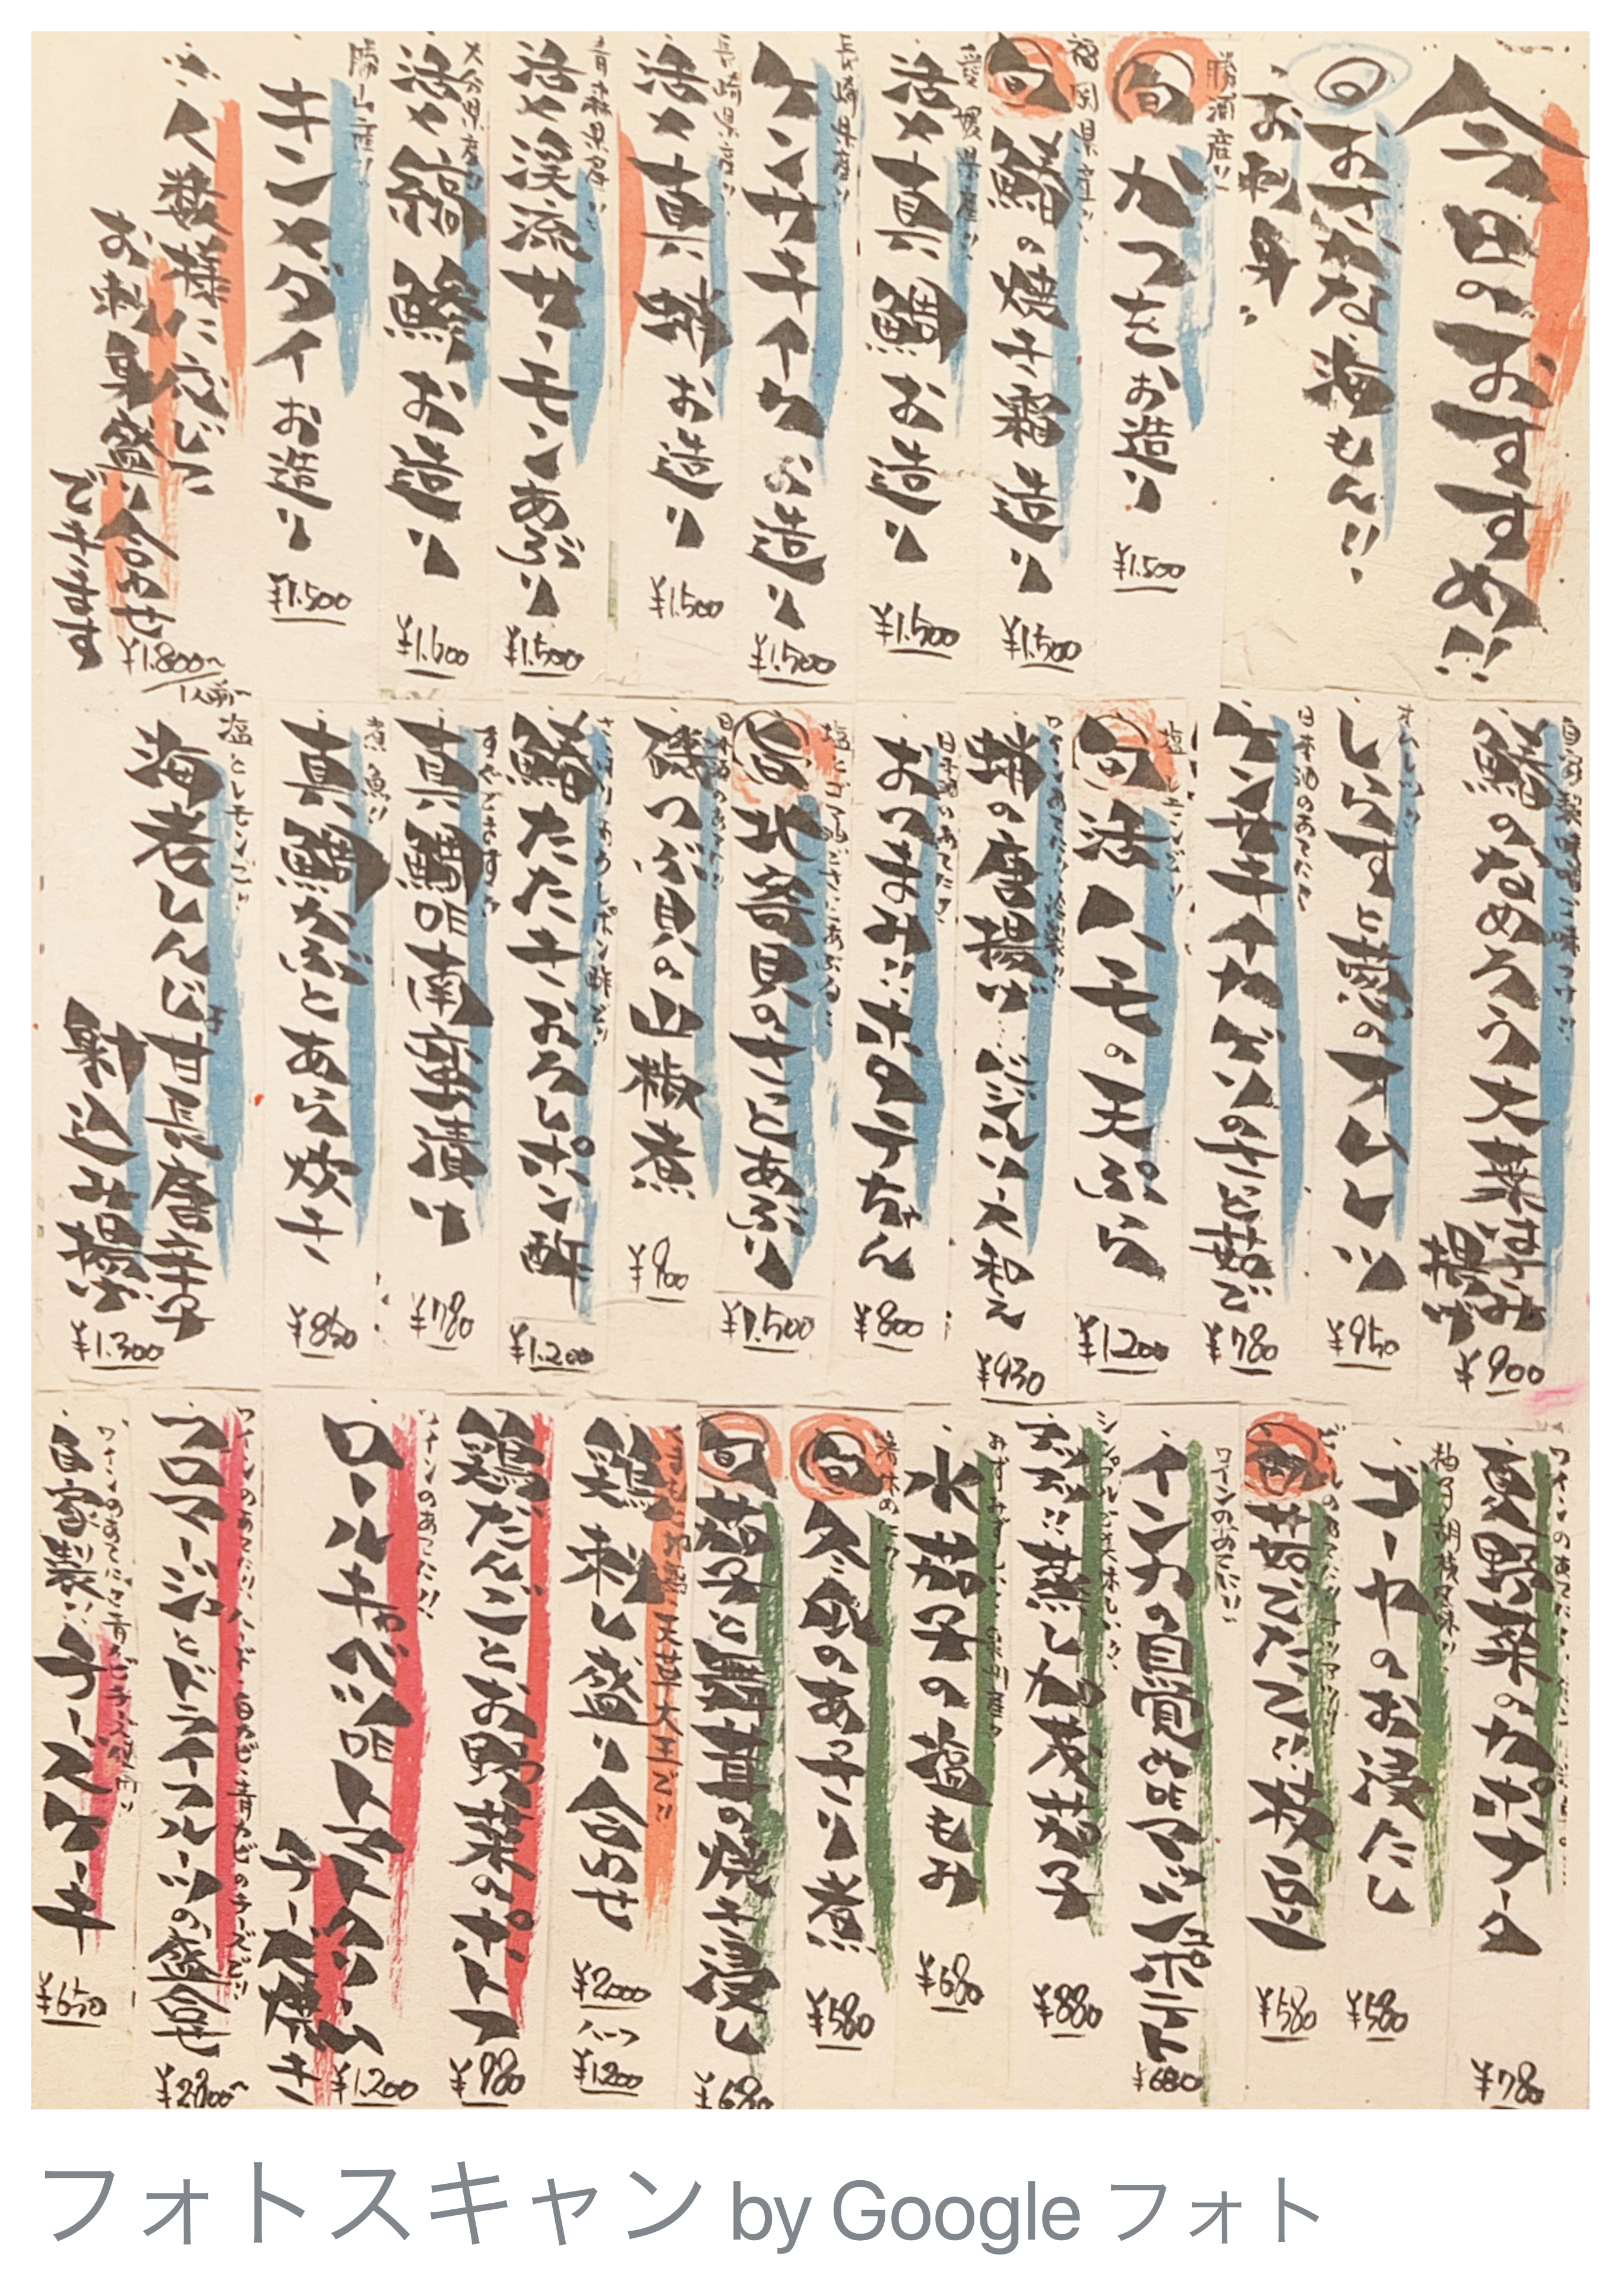 今日のおすすめ!!
旬
おさかな海もん!!
お刺身
勝浦産!!
旬
かつをお造り
¥1.500
福岡県産!!
旬
鰆の焼き霜造り
¥1.500
愛媛県産!!
活〆真鯛お造り
¥1.500
長崎県産!!
ケンサキイカお造り
¥1.500
長崎県産!!
活〆真蛸お造り
¥1.500
青森県産!!
活〆渓流サーモンあぶり
¥1.500
大分県産!!
活〆縞鯵お造り
¥1.600
勝山産!!
キンメダイお造り
¥1.500
人数様に応じて
お刺身盛り合わせ
できます
¥1.800〜
1人前〜
自家製味噌で味つけ!!
鯵のなめろう大葉はさみ
揚げ
¥900
しらすと葱のオムレツ
¥950
日本酒のあてに!!
ケンサキイカゲソのさっと茹で
¥780
旬
活ハモの天ぷら
¥1.200
蛸の唐揚げ
¥930
日本酒のあてに!!
おつまみ!!ホタテちゃん
¥800
旬
北寄貝のさっとあぶり
¥1.500
日本酒のあてに!!
磯つぶ貝の山椒煮
¥900
さっぱりおろしポン酢で!!
鰆たたきおろしポン酢
¥1.200
真鯛の南蛮漬け
¥780
煮魚!!
真鯛かぶとあら炊き
¥850
塩とレモンで!!
海老しんじょ甘長唐辛子
射込み揚げ
¥1.300
夏野菜のカポナータ
¥780
柚子胡椒風味!!
ゴーヤのお浸たし
¥580
茹でたて!!枝豆
¥580
ワインのあてに!!
インカの目覚めのマッシュポテト
¥680
蒸し加茂茄子
¥880
水茄子の塩もみ
¥680
旬
冬瓜のあっさり煮
¥580
旬
茄子と舞茸の焼き浸し
¥680
天草大王で!!
鶏刺し盛り合わせ
¥2.000
ハーフ
¥1.200
鶏だんごとお野菜のポトフ
¥980
ワインのあてに!!
ロールキャベツのトマトクリーム
チーズ焼き
¥1.200
フロマージュとドライフルーツの盛合せ
¥2.800〜
自家製!!チーズケーキ
¥650
フォトスキャン by Google フォト